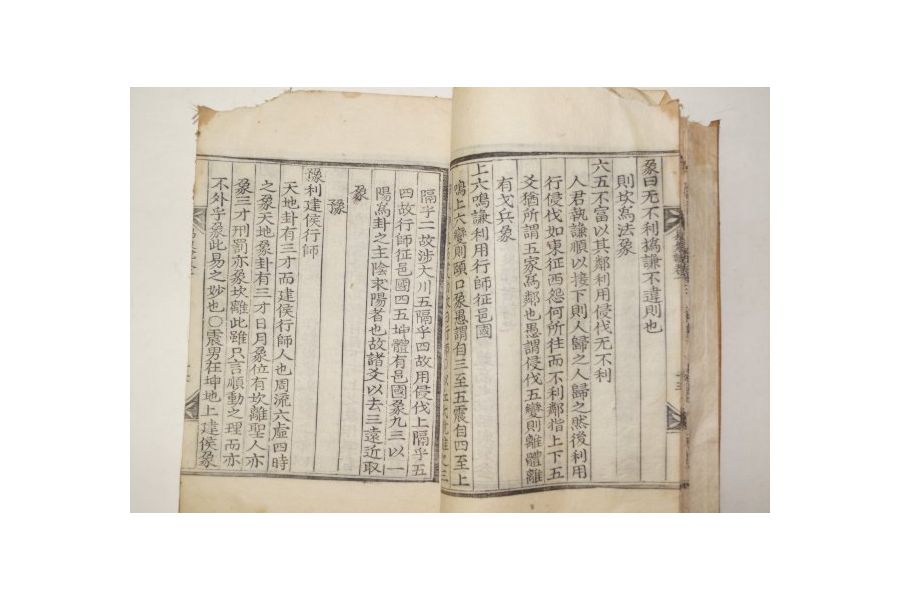 象曰无不利撝謙不違則也
則坎為法象
六五不富以其鄰利用侵伐无不利
人君執謙順以接下則人歸之人歸之然後利用
行侵伐如東征西怨何所往而不利鄰指上下五
爻猶所謂五家為鄰也愚謂侵伐五變則離體離
有戈兵象
上六鳴謙利用行師征邑國
鳴上六變則頤口象愚謂自三至五震自四至上
隔乎二故涉大川五隔乎四故用侵伐上隔乎五
四故行師征邑國四五坤體有邑國象九三以一
陽為卦之主陰求陽者也故諸爻以去三遠近取
象
豫
豫利建侯行師
天地卦有三才而建侯行師人也周流六虛四時
之象天地象卦有三才日月象位有坎離聖人亦
象三才刑罰亦象坎離此雖只言順動之理而亦
不外乎象此易之妙也〇震男在坤地上建侯象